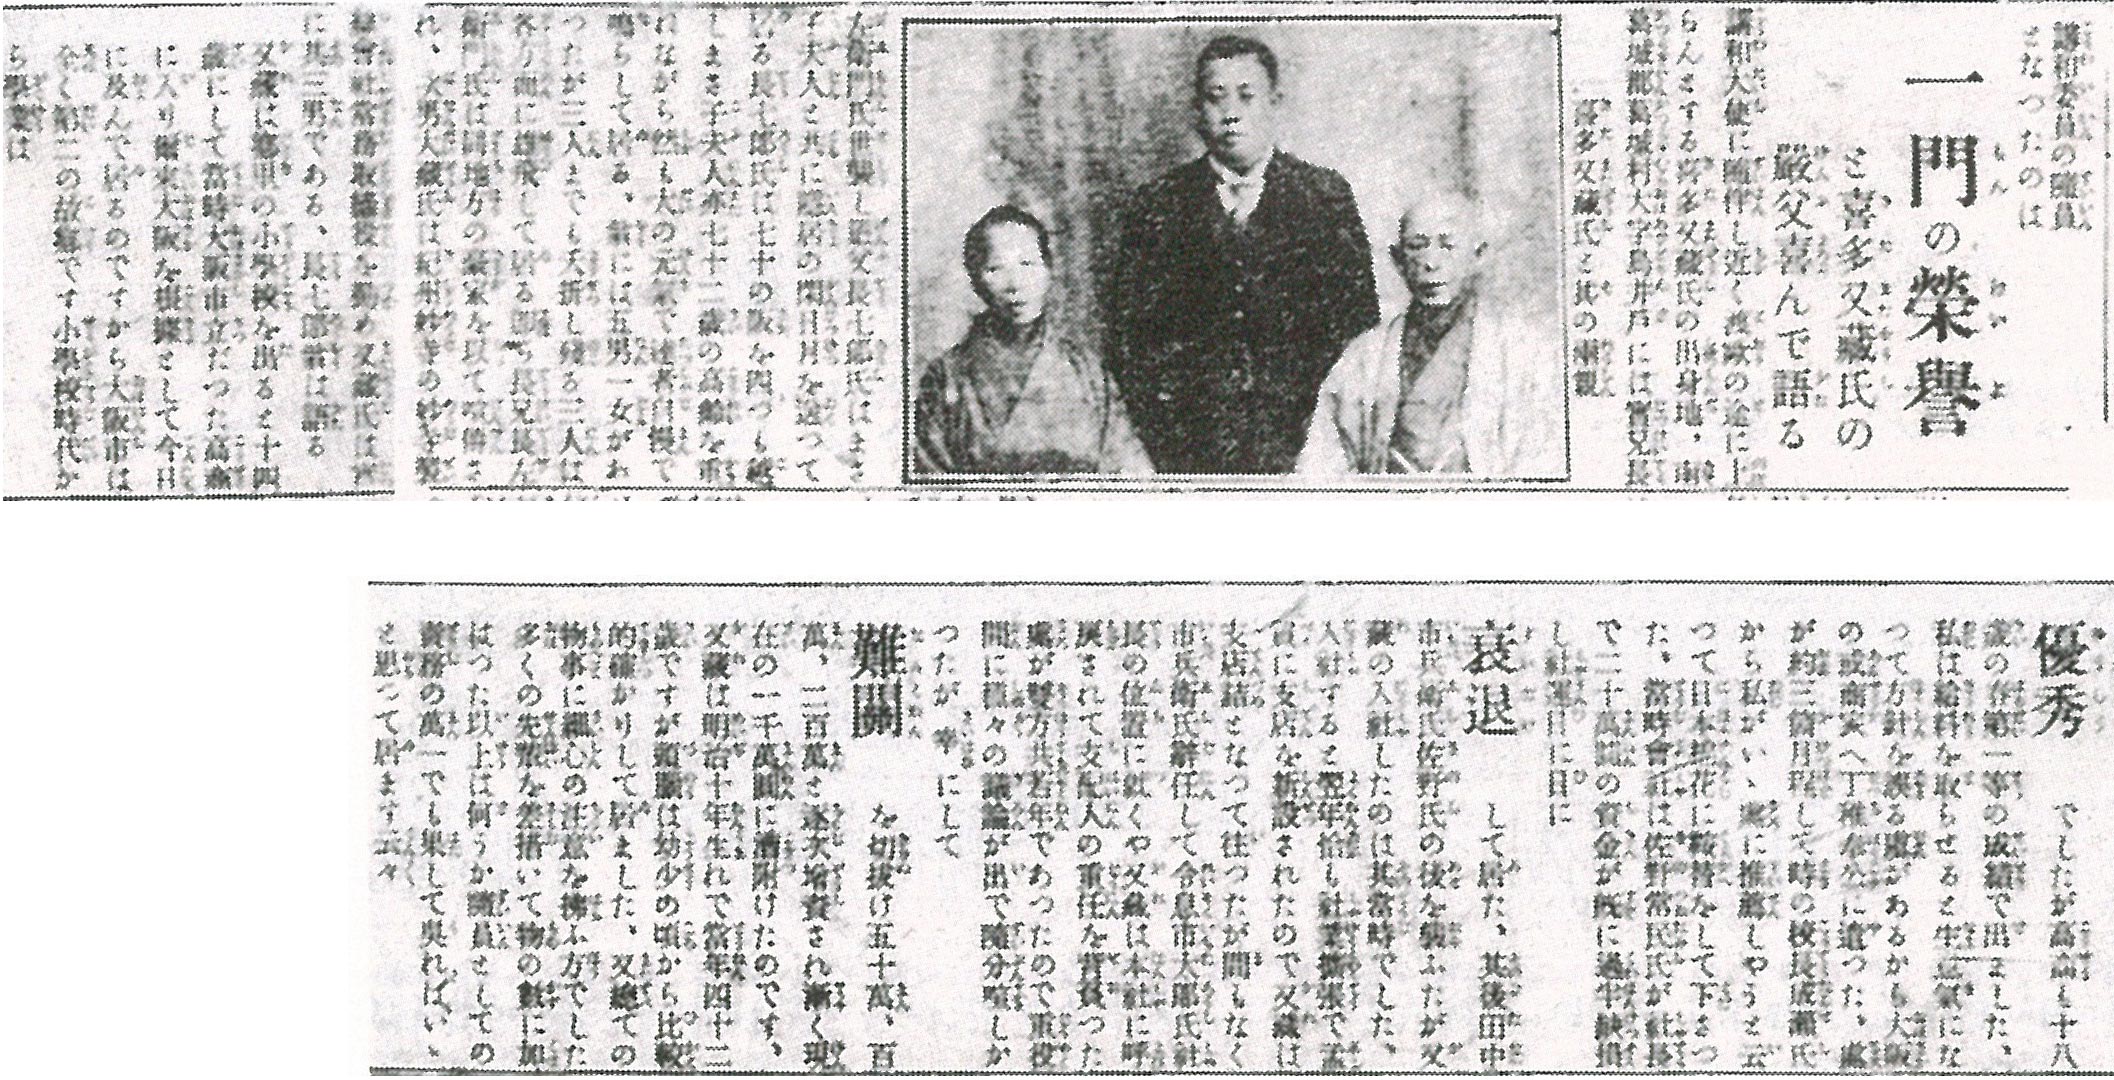 講和委員の隨員
となつたのは
一門の榮譽
と喜多又藏氏の
嚴父喜んで語る
講和大使に隨伴し近く渡歐の途に上
らんとする喜多又藏氏の出身地、南
葛城郡葛城村大字鳥井戸には實兄長
喜多又藏氏と其の兩親
左衛門氏世襲し嚴父長七郎氏はまさ
子夫人と共に隱居の閑日月を送つて
居る長七郎氏は七十の阪を四つも越
しまさ子夫人亦七十二歳の高齡を重
れながら然も大の元氣で達者自慢で
鳴らして居る、翁には五男一女があ
つたが三人までも夭折し殘る三人は
各方面に雄飛して居る即ち長兄長左
衛門氏は同地方の豪家を以て喧傳さ
れ、次男大藏氏は紀州
總會社常務取締役を勤め又藏氏は實
に其三男である、長七郎翁は語る
又藏は郷里の小學校を出ると十四
歳にして當時大阪市立だつた高商
に入り爾來大阪を根據として今日
に及んで居るのですから大阪市は
全く第二の故郷です小學校時代か
ら學業は
優秀 でしたが高商も十八
歳の春第一等の成績で出ました、
私は給料を取らせると生意氣にな
つて方針を誤る處があるから大阪
の或商家へ丁稚奉公に遣つた、處
が約三箇月程して時の校長成瀬氏
から私がいゝ處に推薦しやうと云
つて日本綿花に鞍替をして下さつ
た、當時會社は佐野常民氏が社長
で二十萬圓の資金が既に過半缺損
し社運日に日に
衰退 して居た、其後田中
市兵衛氏佐野氏の後を襲ふたが又
藏の入社したのは其當時でした、
入社すると翌年伯し社業擴張で孟
買に支店を新設されたので又藏は
支店詰となつて往つたが間もなく
市兵衛氏辭任して令息市太郎氏社
長の位置に就くや又藏は本社に呼
戻されて支配人の重任を背負つた
處が雙方共若年であつたので重役
間に種々の議論が出で隨分喧しか
つたが 幸にして
難關 を切拔け五十萬、百
萬、二百萬と逐次增資され漸く現
在の一千萬圓に漕附けたのです、
又藏は明治十年生れで當年四十二
歳ですが頭腦は幼少の頃から比較
的確かりして居ました、又總ての
物事に細心の注意を拂ふ方でした
多くの先輩を差措いて物の數に加
はつた以上は何うか隨員としての
責務の萬一でも果して吳ればいゝ
と思つて居ます云々